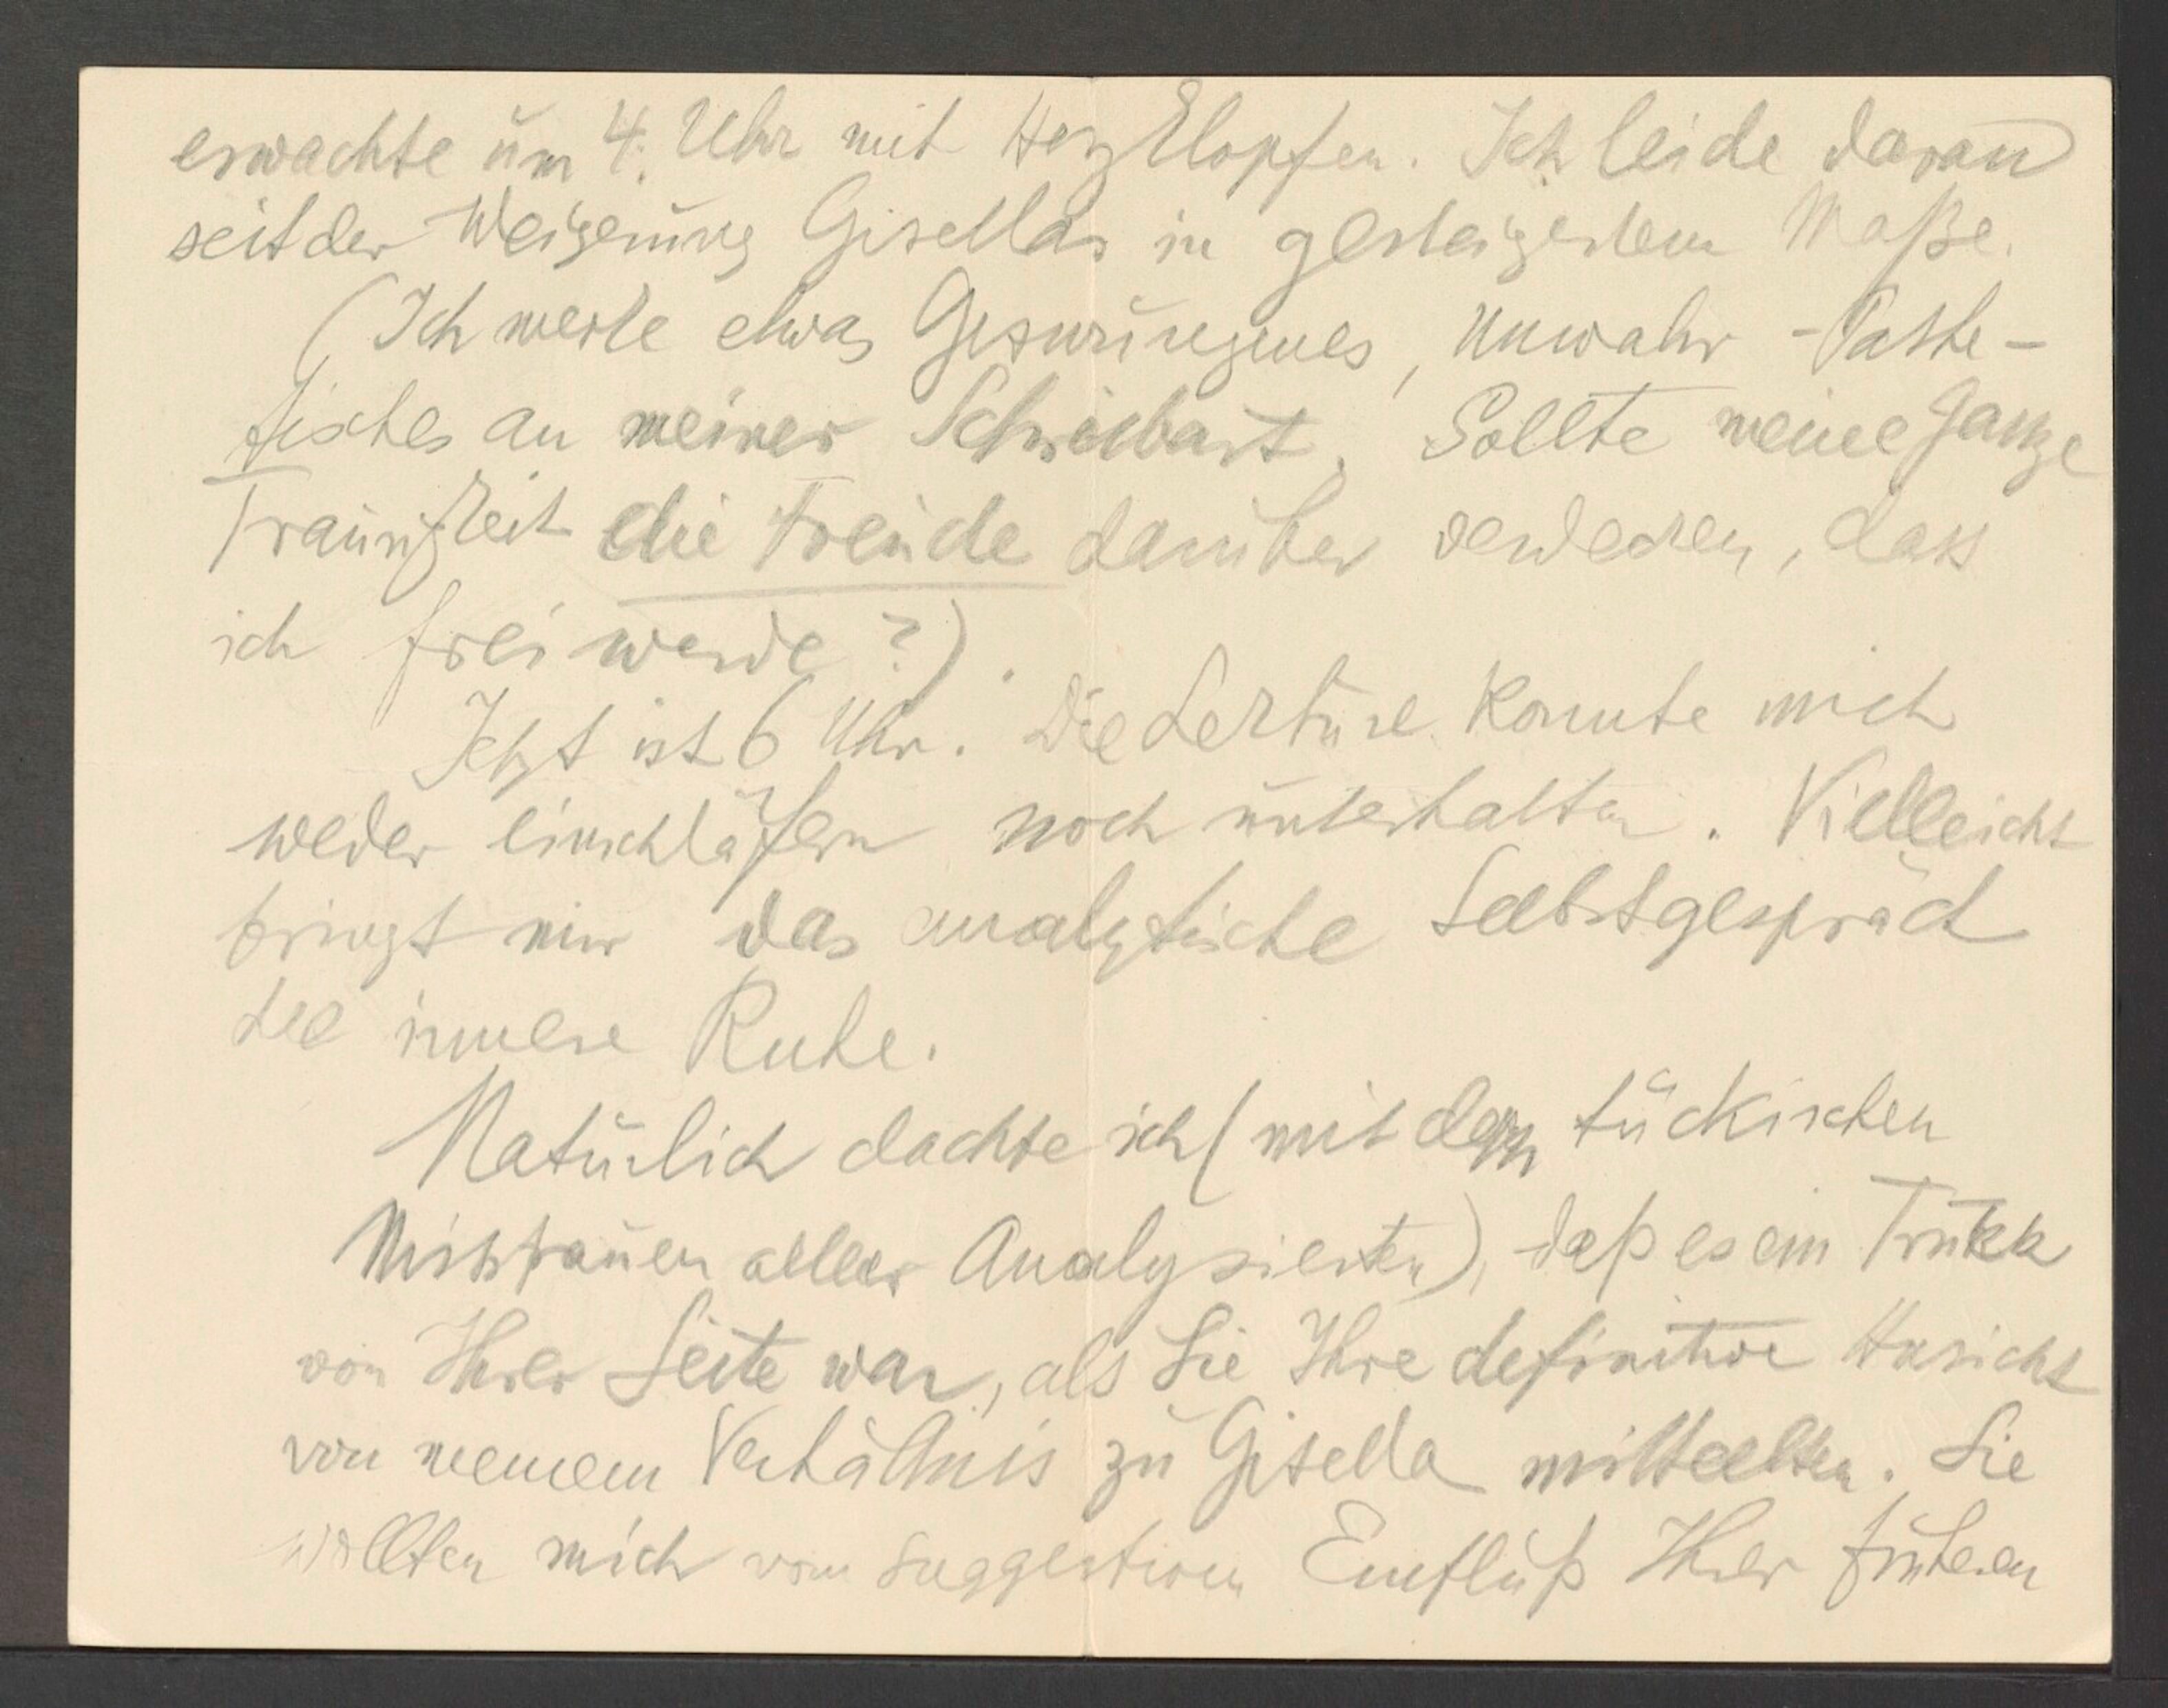 erwachte um 4. Uhr mit Herzklopfen. Ich leide daran
seit der Weigerung Gisellas in gesteigertem Maße.
(Ich merke etwas Gezwungenes, Unwahr-Pathe-
tisches an meiner Schreibart. Sollte meine ganze
Traurigkeit die Freude darüber verdecken, dass
ich frei werde?).
Jetzt ist 6 Uhr. Die Lektüre konnte mich
weder einschläfern noch unterhalten. Vielleicht
bringt mir das analytische Selbstgespräch
die innere Ruhe.
Natürlich dachte ich (mit dem tückischen
Misstrauen aller Analysierten), daß es ein Trükk
von Ihrer Seite war, als Sie Ihre definitive Ansicht
von meinem Verhältnis zu Gisella mitteilten. Sie
wollten mich vom suggestiven Einfluß Ihrer früheren